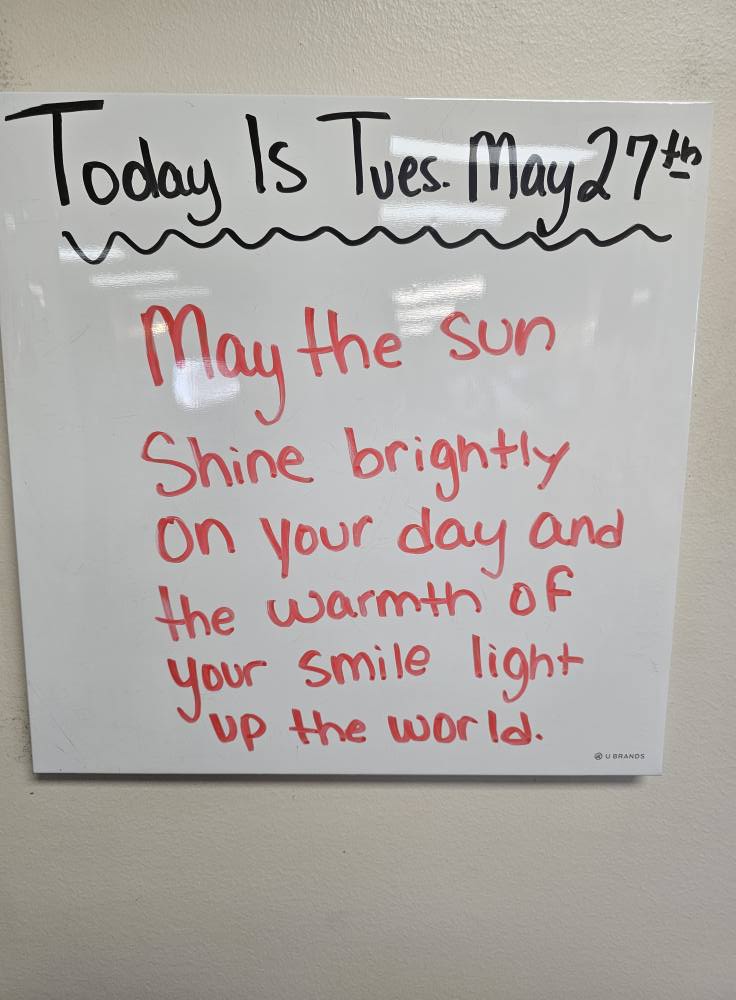 Today Is Tues. May 27th
May the sun
Shine brightly
on your day and
the warmth of
your smile light
up the world.
U BRANDS